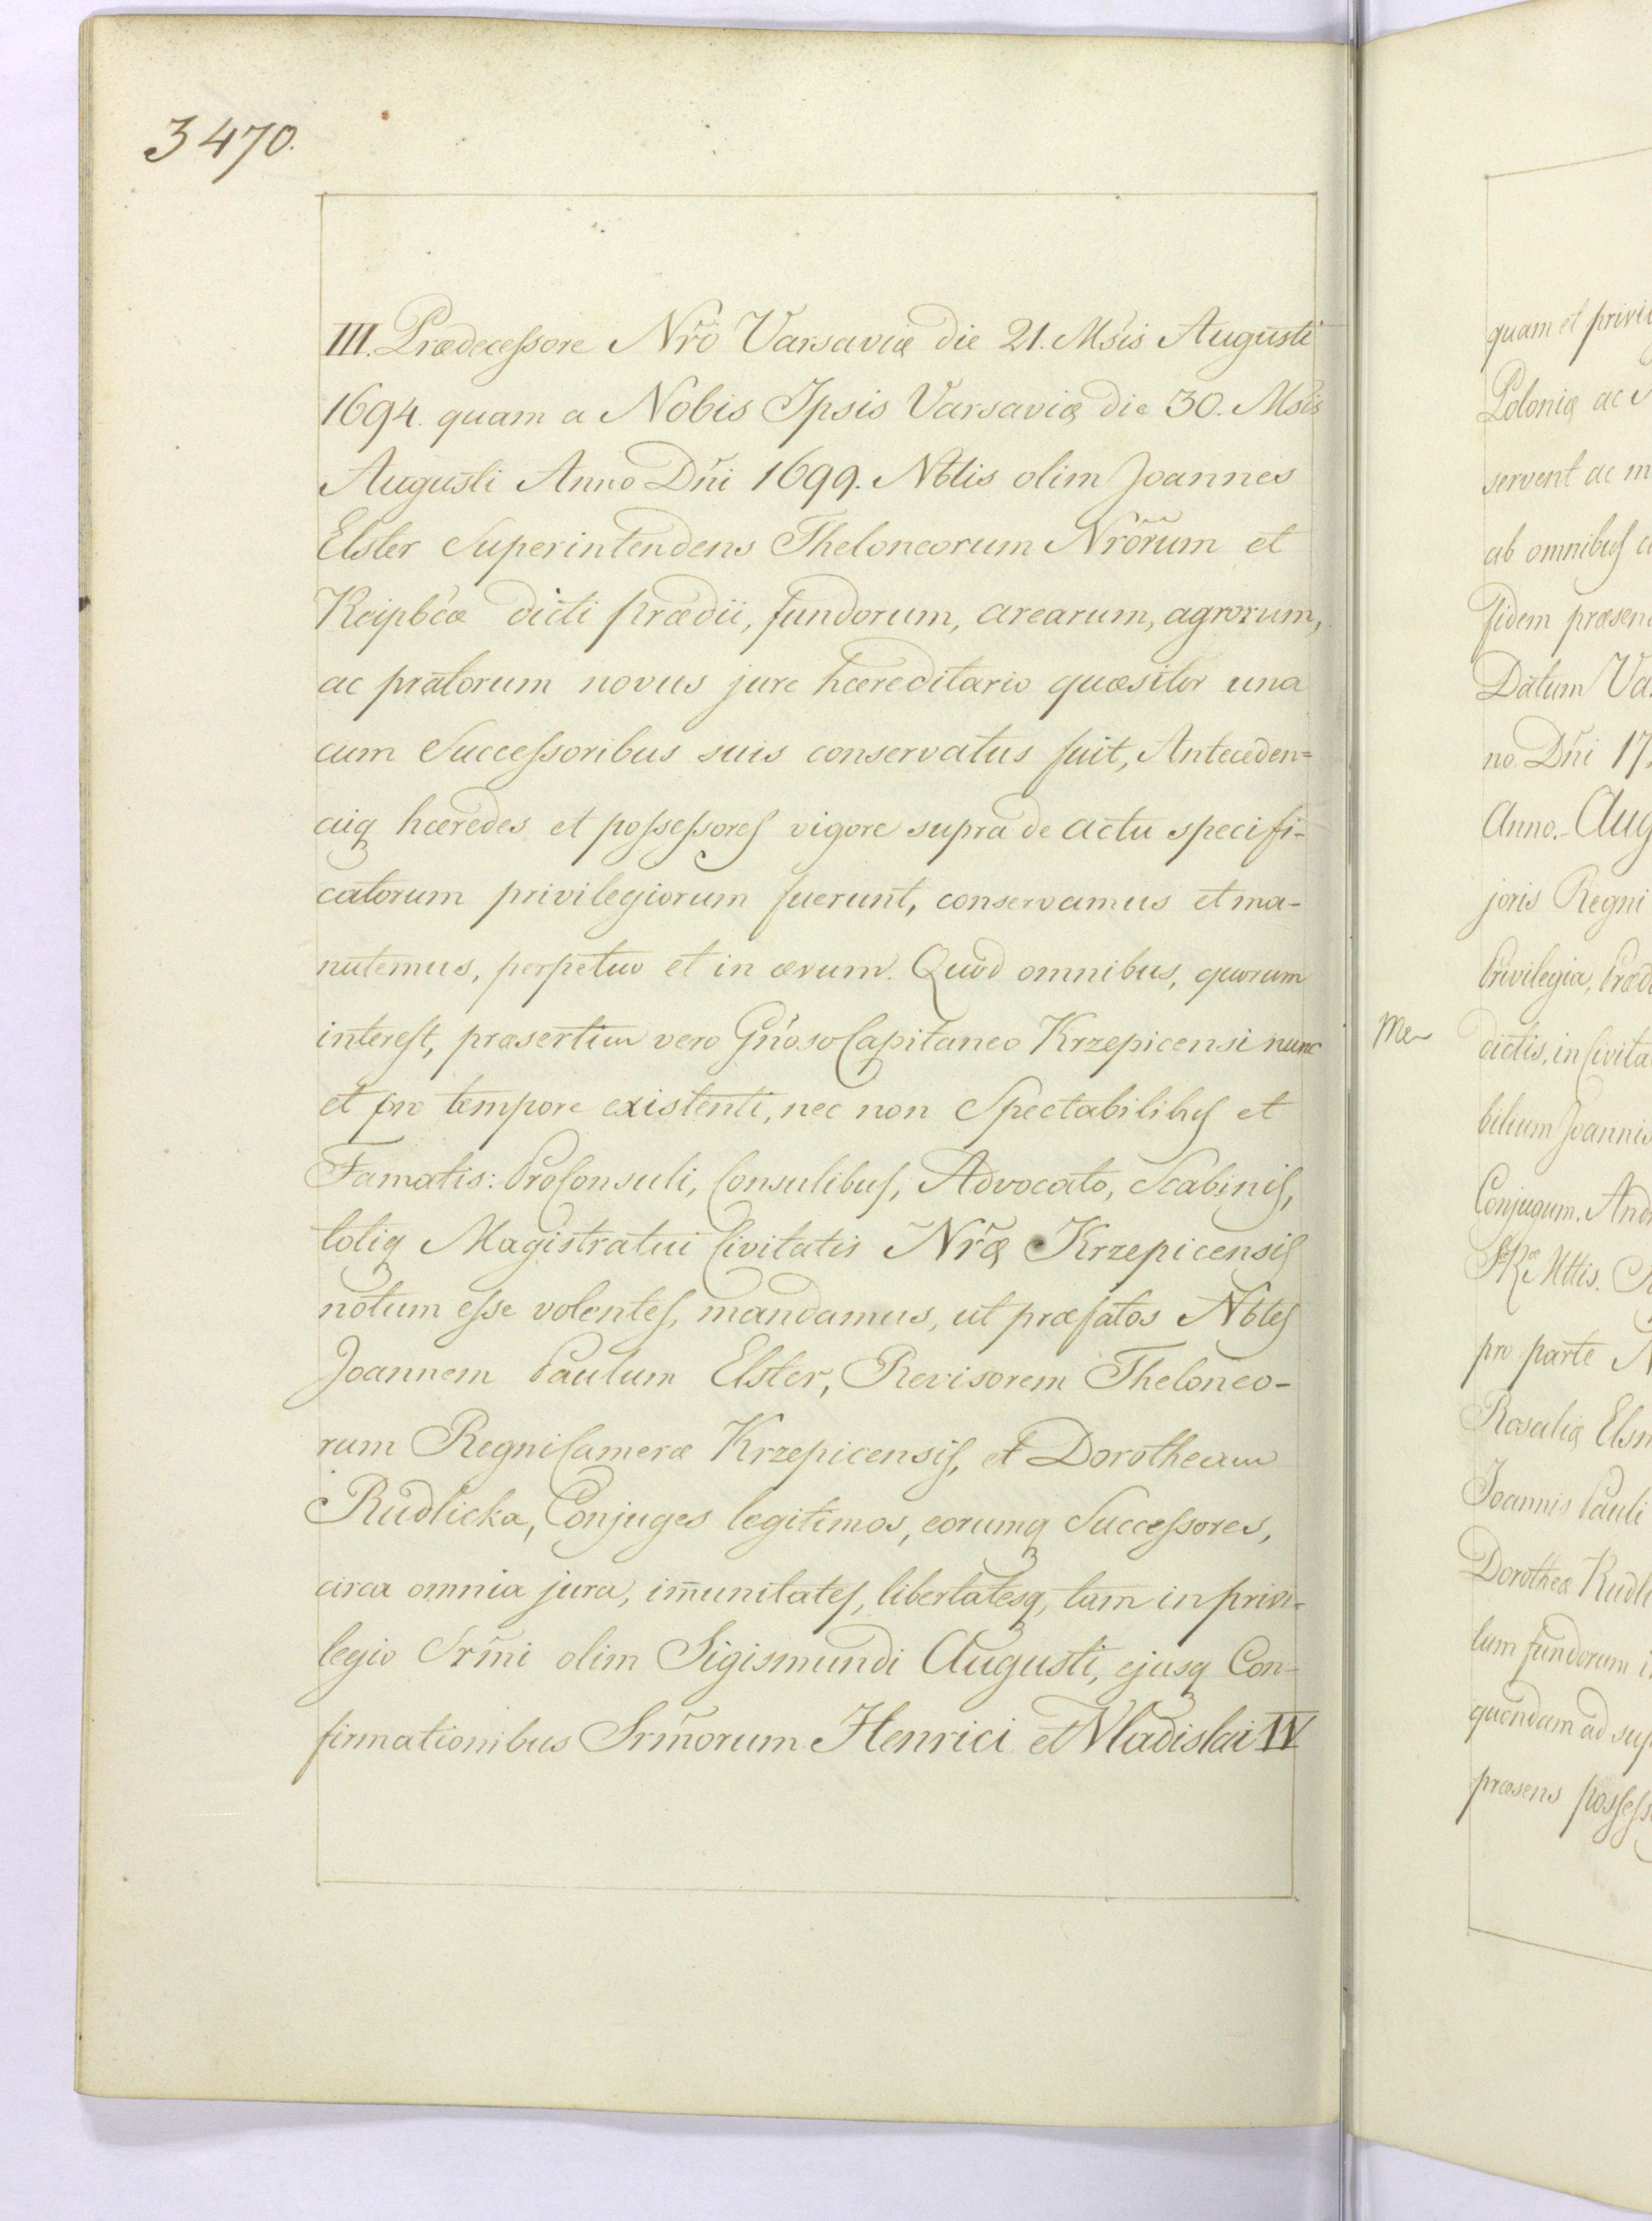 3470.
III. Prædecessore Nrõ Varsaviæ die 21. Msis Augusti
1694. quam a Nobis Ipsis Varsaviæ die 30. Msis
Augusti Anno Dni 1699. Nblis olim Joannes
Elsler Superintendens Theloneorum Nrõrum et
Reipbcæ dicti prædii, fundorum, arearum, agrorum,
ac pratorum novus jure hæreditario quæsitor una
cum Successoribus suis conservatus fuit, Anteceden=
aiq hæredes et possessores vigore supra de actu specifi=
catorum privilegiorum fuerunt, conservamus et ma-
nutemus, perpetuo et in ævum. Quod omnibus, quorum
interest, præsertim vero Gnoso Capitaneo Krzepicensi nunc
et pro tempore existenti, nec non Spectabilibus et
Famatis: ProConsuli, Consulibus, Advocato, Scabinis,
totiq Magistratui Civitatis Nræ Krzepicensis
notum esse volentes, mandamus, ut præfatos Nbles
Joannem Paulum Elster, Revisorem Theloneo-
rum Regni Cameræ Krzepicensis, et Dorotheam
Rudlicka, Conjuges legitimos, eorumq Successores,
circa omnia jura, im̃unitates, libertatesq, tam in privi-
legio Srmi olim Sigismundi Augusti, ejusq Con-
firmationibus Srmorum Henrici et Vladislai IV
quam et privi
Poloniæ ac
servent ac m
ab omnibus
fidem præsen
Datum Va
no Dni 17
Anno. Aug
joris Regni
Privilegia, Præd
dictis, in Civita
bilium Joannis
Conjugum. And
pro parte N
Rosaliæ Elsn
Joannis Pauli
Dorotheæ Rudli
tum fundorum i
quondam ad sup
præsens possess